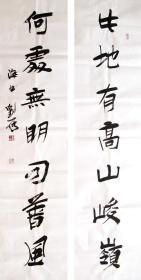 此地有高山峻嶺
何處無明月風